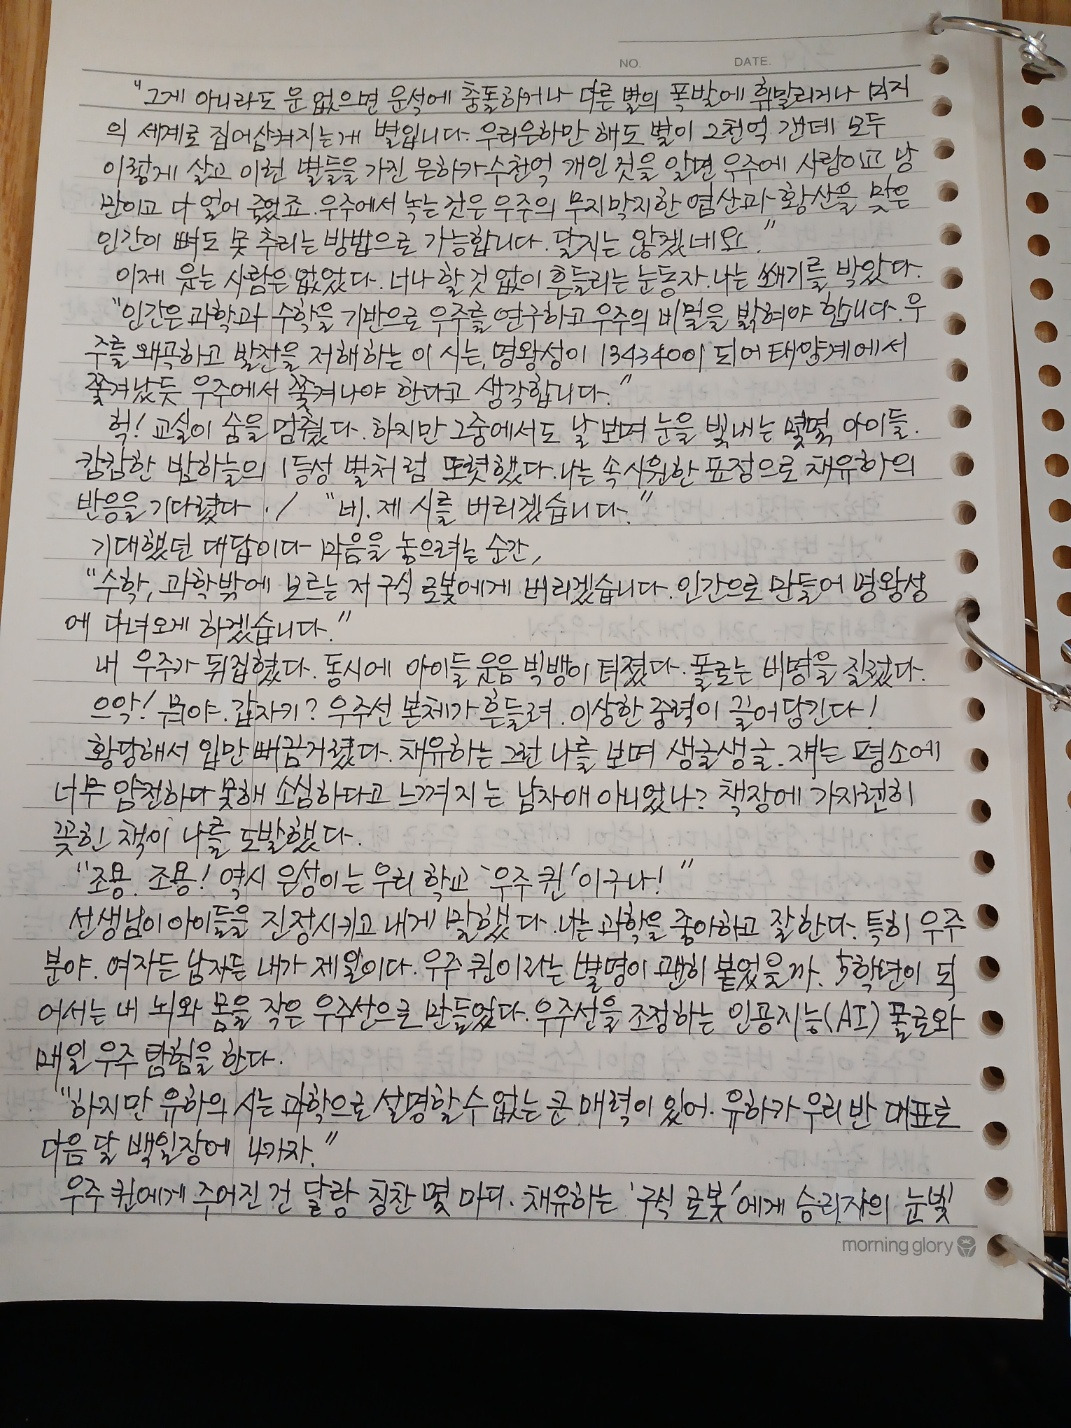 NO. DATE.
"그게 아니라도 운 없으면 운석에 충돌하거나 다른 별의 폭발에 휘말리거나 미지
의 세계로 집어삼켜지는게 별입니다. 우리은하만 해도 별이 2천억 갠데 모두
이렇게 살고 이런 별들을 가진 은하가 수천억 개인 것을 알면 우주에 사람이고 낭
만이고 다 얼어 죽었죠. 우주에서 녹는 것은 우주의 무지막지한 염산과 황산을 맞은
인간이 뼈도 못 추리는 방법으로 가능합니다. 달지는 않겠네요."
이제 웃는 사람은 없었다. 너나 할 것 없이 흔들리는 눈동자. 나는 쐐기를 박았다.
"인간은 과학과 수학을 기반으로 우주를 연구하고 우주의 비밀을 밝혀야 합니다. 우
주를 왜곡하고 발전을 저해하는 이 시는, 명왕성이 134340이 되어 태양계에서
쫓겨났듯 우주에서 쫓겨나야 한다고 생각합니다."
헉! 교실이 숨을 멈췄다. 하지만 그중에서도 날 보며 눈을 빛내는 몇몇 아이들.
캄캄한 밤하늘의 1등성 별처럼 또렷했다. 나는 속시원한 표정으로 채유하의
반응을 기다렸다. / "네. 제 시를 버리겠습니다."
기대했던 대답이다 마음을 놓으려는 순간,
"수학, 과학밖에 모르는 저 구식 로봇에게 버리겠습니다. 인간으로 만들어 명왕성
에 다녀오게 하겠습니다."
내 우주가 뒤집혔다. 동시에 아이들 웃음 빅뱅이 터졌다. 폴로는 비명을 질렀다.
으악! 뭐야. 갑자기? 우주선 본체가 흔들려. 이상한 중력이 끌어당긴다!
황당해서 입만 뻐끔거렸다. 채유하는 그런 나를 보며 생글생글. 쟤는 평소에
너무 얌전하다 못해 소심하다고 느껴지는 남자애 아니었나? 책장에 가지런히
꽂힌 책이 나를 도발했다.
"조용. 조용! 역시 은성이는 우리 학교 '우주 퀸'이구나!"
선생님이 아이들을 진정시키고 내게 말했다. 나는 과학을 좋아하고 잘한다. 특히 우주
분야. 여자든 남자든 내가 제일이다. 우주 퀸이라는 별명이 괜히 붙었을까. 5학년이 되
어서는 내 뇌와 몸을 작은 우주선으로 만들었다. 우주선을 조정하는 인공지능(AI) 폴로와
매일 우주 탐험을 한다.
"하지만 유하의 시는 과학으로 설명할 수 없는 큰 매력이 있어. 유하가 우리 반 대표로
다음 달 백일장에 나가자."
우주 퀸에게 주어진 건 달랑 칭찬 몇 마디. 채유하는 '구식 로봇'에게 승리자의 눈빛
morning glory